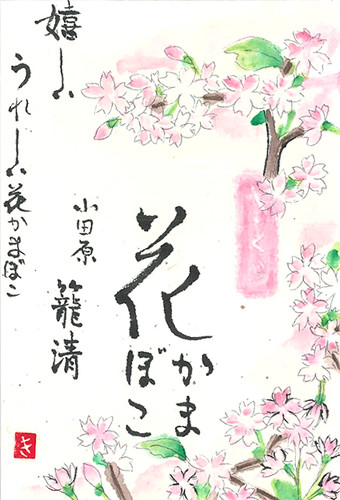 花
かま
ぼこ
小田原
籠清
嬉しい
うれしい花かまぼこ